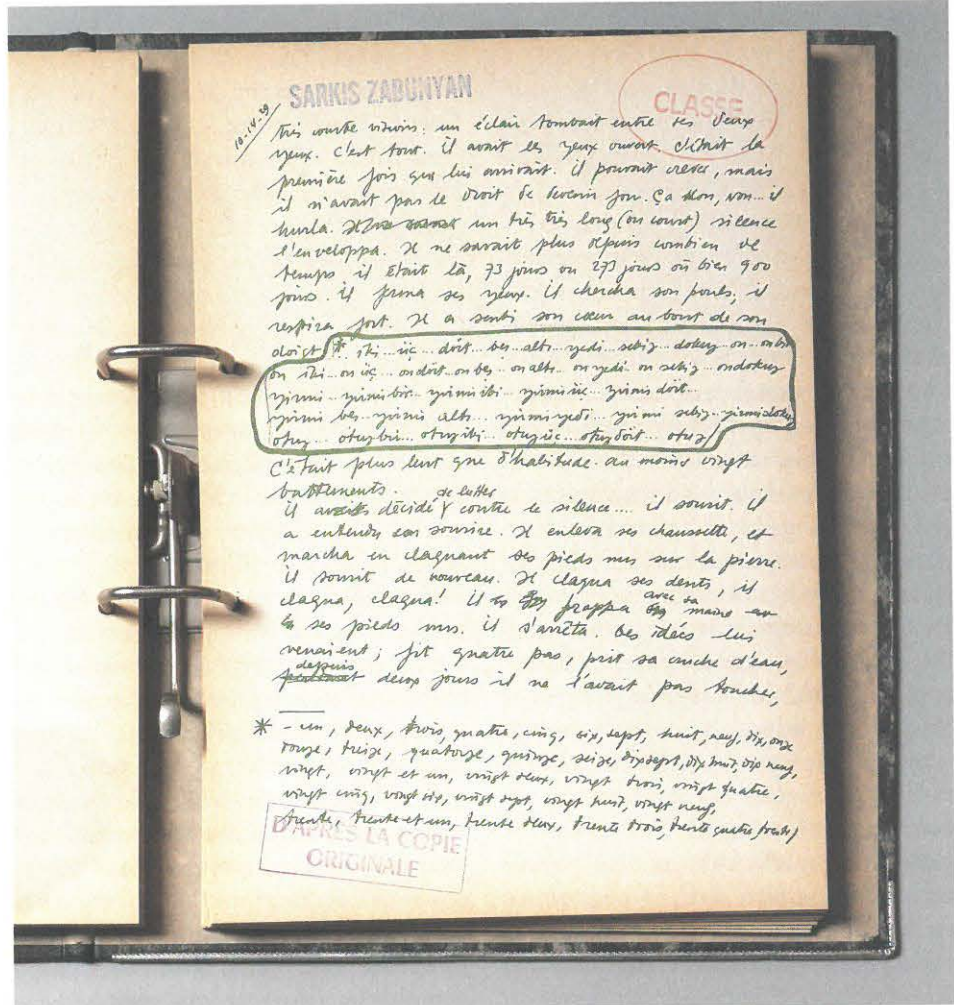 SARKIS ZABUNYAN
CLASSÉ
10-14-29
très courte : un éclair tombait entre ses deux
yeux. C'est tout. Il avait les yeux ouvert. C'était la
première fois que lui arrivait. Il pouvait crever, mais
il n'avait pas le droit de devenir fou. Ça Non, non... il
hurla. un très très long (ou court) silence
l'enveloppa. Il ne savait plus depuis combien de
temps il était là, 73 jours ou 273 jours où bien 900
jours. il ferma ses yeux. il chercha son pouls, il
respira fort. Il a senti son cœur au bout de son
doigt * iki... üç... dört... beş... altı... yedi... sekiz... dokuz... on... onbir
on iki... on üç... ondört... on beş... on altı... on yedi... on sekiz... ondokuz
yirmi... yirmi bir... yirmi iki... yirmi üç... yirmi dört...
yirmi beş... yirmi altı... yirmi yedi... yirmi sekiz... yirmi dokuz
otuz... otuz bir... otuz iki... otuz üç... otuz dört... otuz
C'était plus lent que d'habitude. au moins vingt
battements.
il avait décidé de lutter contre le silence.... il sourit. il
a entendu son sourire. Il enleva ses chaussette, et
marcha en claquant ses pieds nus sur la pierre.
il sourit de nouveau. Il claqua ses dents, il
claqua, claqua! il frappa avec sa
ses pieds nus. il s'arrêta. Des idées lui
venaient ; fit quatre pas, prit sa cruche d'eau,
depuis deux jours il ne l'avait pas toucher,
* - un, deux, trois, quatre, cinq, six, sept, huit, neuf, dix, onze
douze, treize, quatorze, quinze, seize, dix sept, dix huit, dix neuf,
vingt, vingt et un, vingt deux, vingt trois, vingt quatre,
vingt cinq, vingt six, vingt sept, vingt huit, vingt neuf,
trente, trente et un, trente deux, trente trois, trente quatre, trente)
D'APRÈS LA COPIE
ORIGINALE